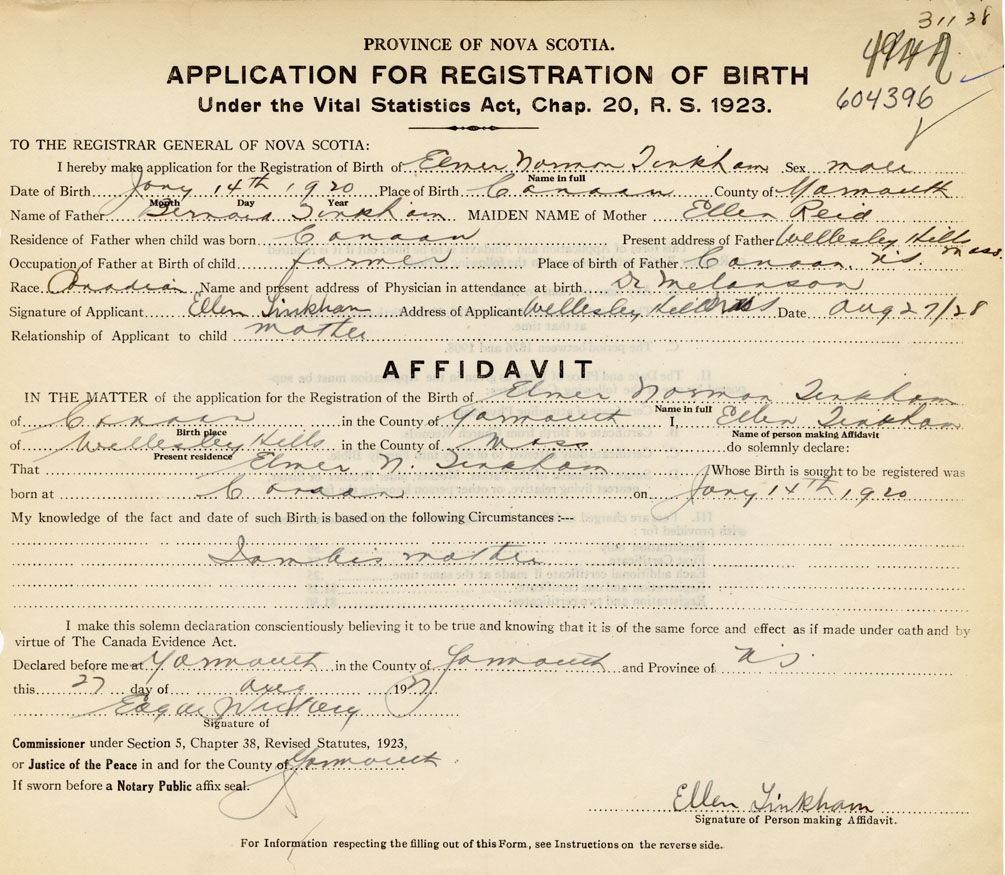 31138
494A
PROVINCE OF NOVA SCOTIA.
APPLICATION FOR REGISTRATION OF BIRTH
Under the Vital Statistics Act, Chap. 20, R. S. 1923.
604396
TO THE REGISTRAR GENERAL OF NOVA SCOTIA:
I hereby make application for the Registration of Birth of Elmer Norman Tinkham Sex male
Name in full
Date of Birth Jany 14th 1920 Place of Birth Canaan County of Yarmouth
Month Day Year
Name of Father Bernard Tinkham MAIDEN NAME of Mother Ellen Reid
Residence of Father when child was born Canaan Present address of Father Wellesley Hills Mass.
Occupation of Father at Birth of child farmer Place of birth of Father Canaan N.S.
Race Canadian Name and present address of Physician in attendance at birth Dr Melanson
Signature of Applicant Ellen Tinkham Address of Applicant Wellesley Hills Mass Date Aug 27/28
Relationship of Applicant to child mother
AFFIDAVIT
IN THE MATTER of the application for the Registration of the Birth of Elmer Norman Tinkham
Name in full
of Canaan in the County of Yarmouth I, Ellen Tinkham
Birth place Name of person making Affidavit
of Wellesley Hills in the County of Mass do solemnly declare:
Present residence
That Elmer N. Tinkham Whose Birth is sought to be registered was
born at Canaan on Jany 14th 1920
My knowledge of the fact and date of such Birth is based on the following Circumstances :---
I am his mother
I make this solemn declaration conscientiously believing it to be true and knowing that it is of the same force and effect as if made under oath and by
virtue of The Canada Evidence Act.
Declared before me at Yarmouth in the County of Yarmouth and Province of N.S.
this 27 day of Aug 192
Signature of
Commissioner under Section 5, Chapter 38, Revised Statutes, 1923,
or Justice of the Peace in and for the County of Yarmouth
If sworn before a Notary Public affix seal.
Ellen Tinkham
Signature of Person making Affidavit.
For Information respecting the filling out of this Form, see Instructions on the reverse side.